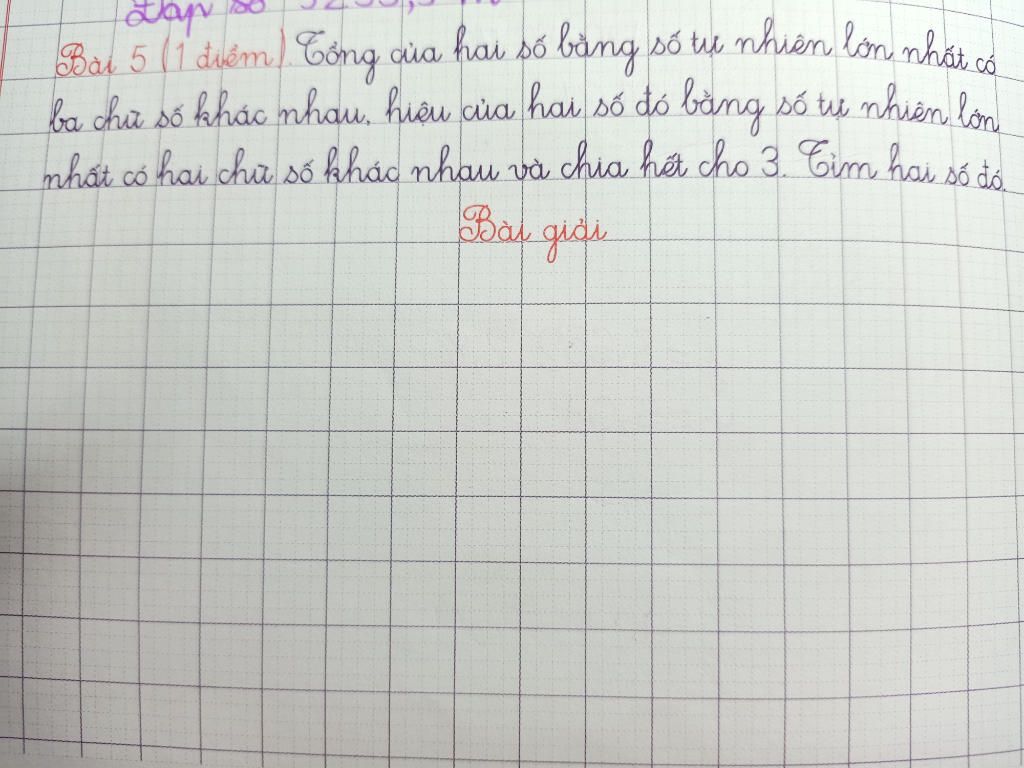 Đáp số 3255,5 m
Bài 5 (1 điểm). Tổng của hai số bằng số tự nhiên lớn nhất có
ba chữ số khác nhau, hiệu của hai số đó bằng số tự nhiên lớn
nhất có hai chữ số khác nhau và chia hết cho 3. Tìm hai số đó.
Bài giải